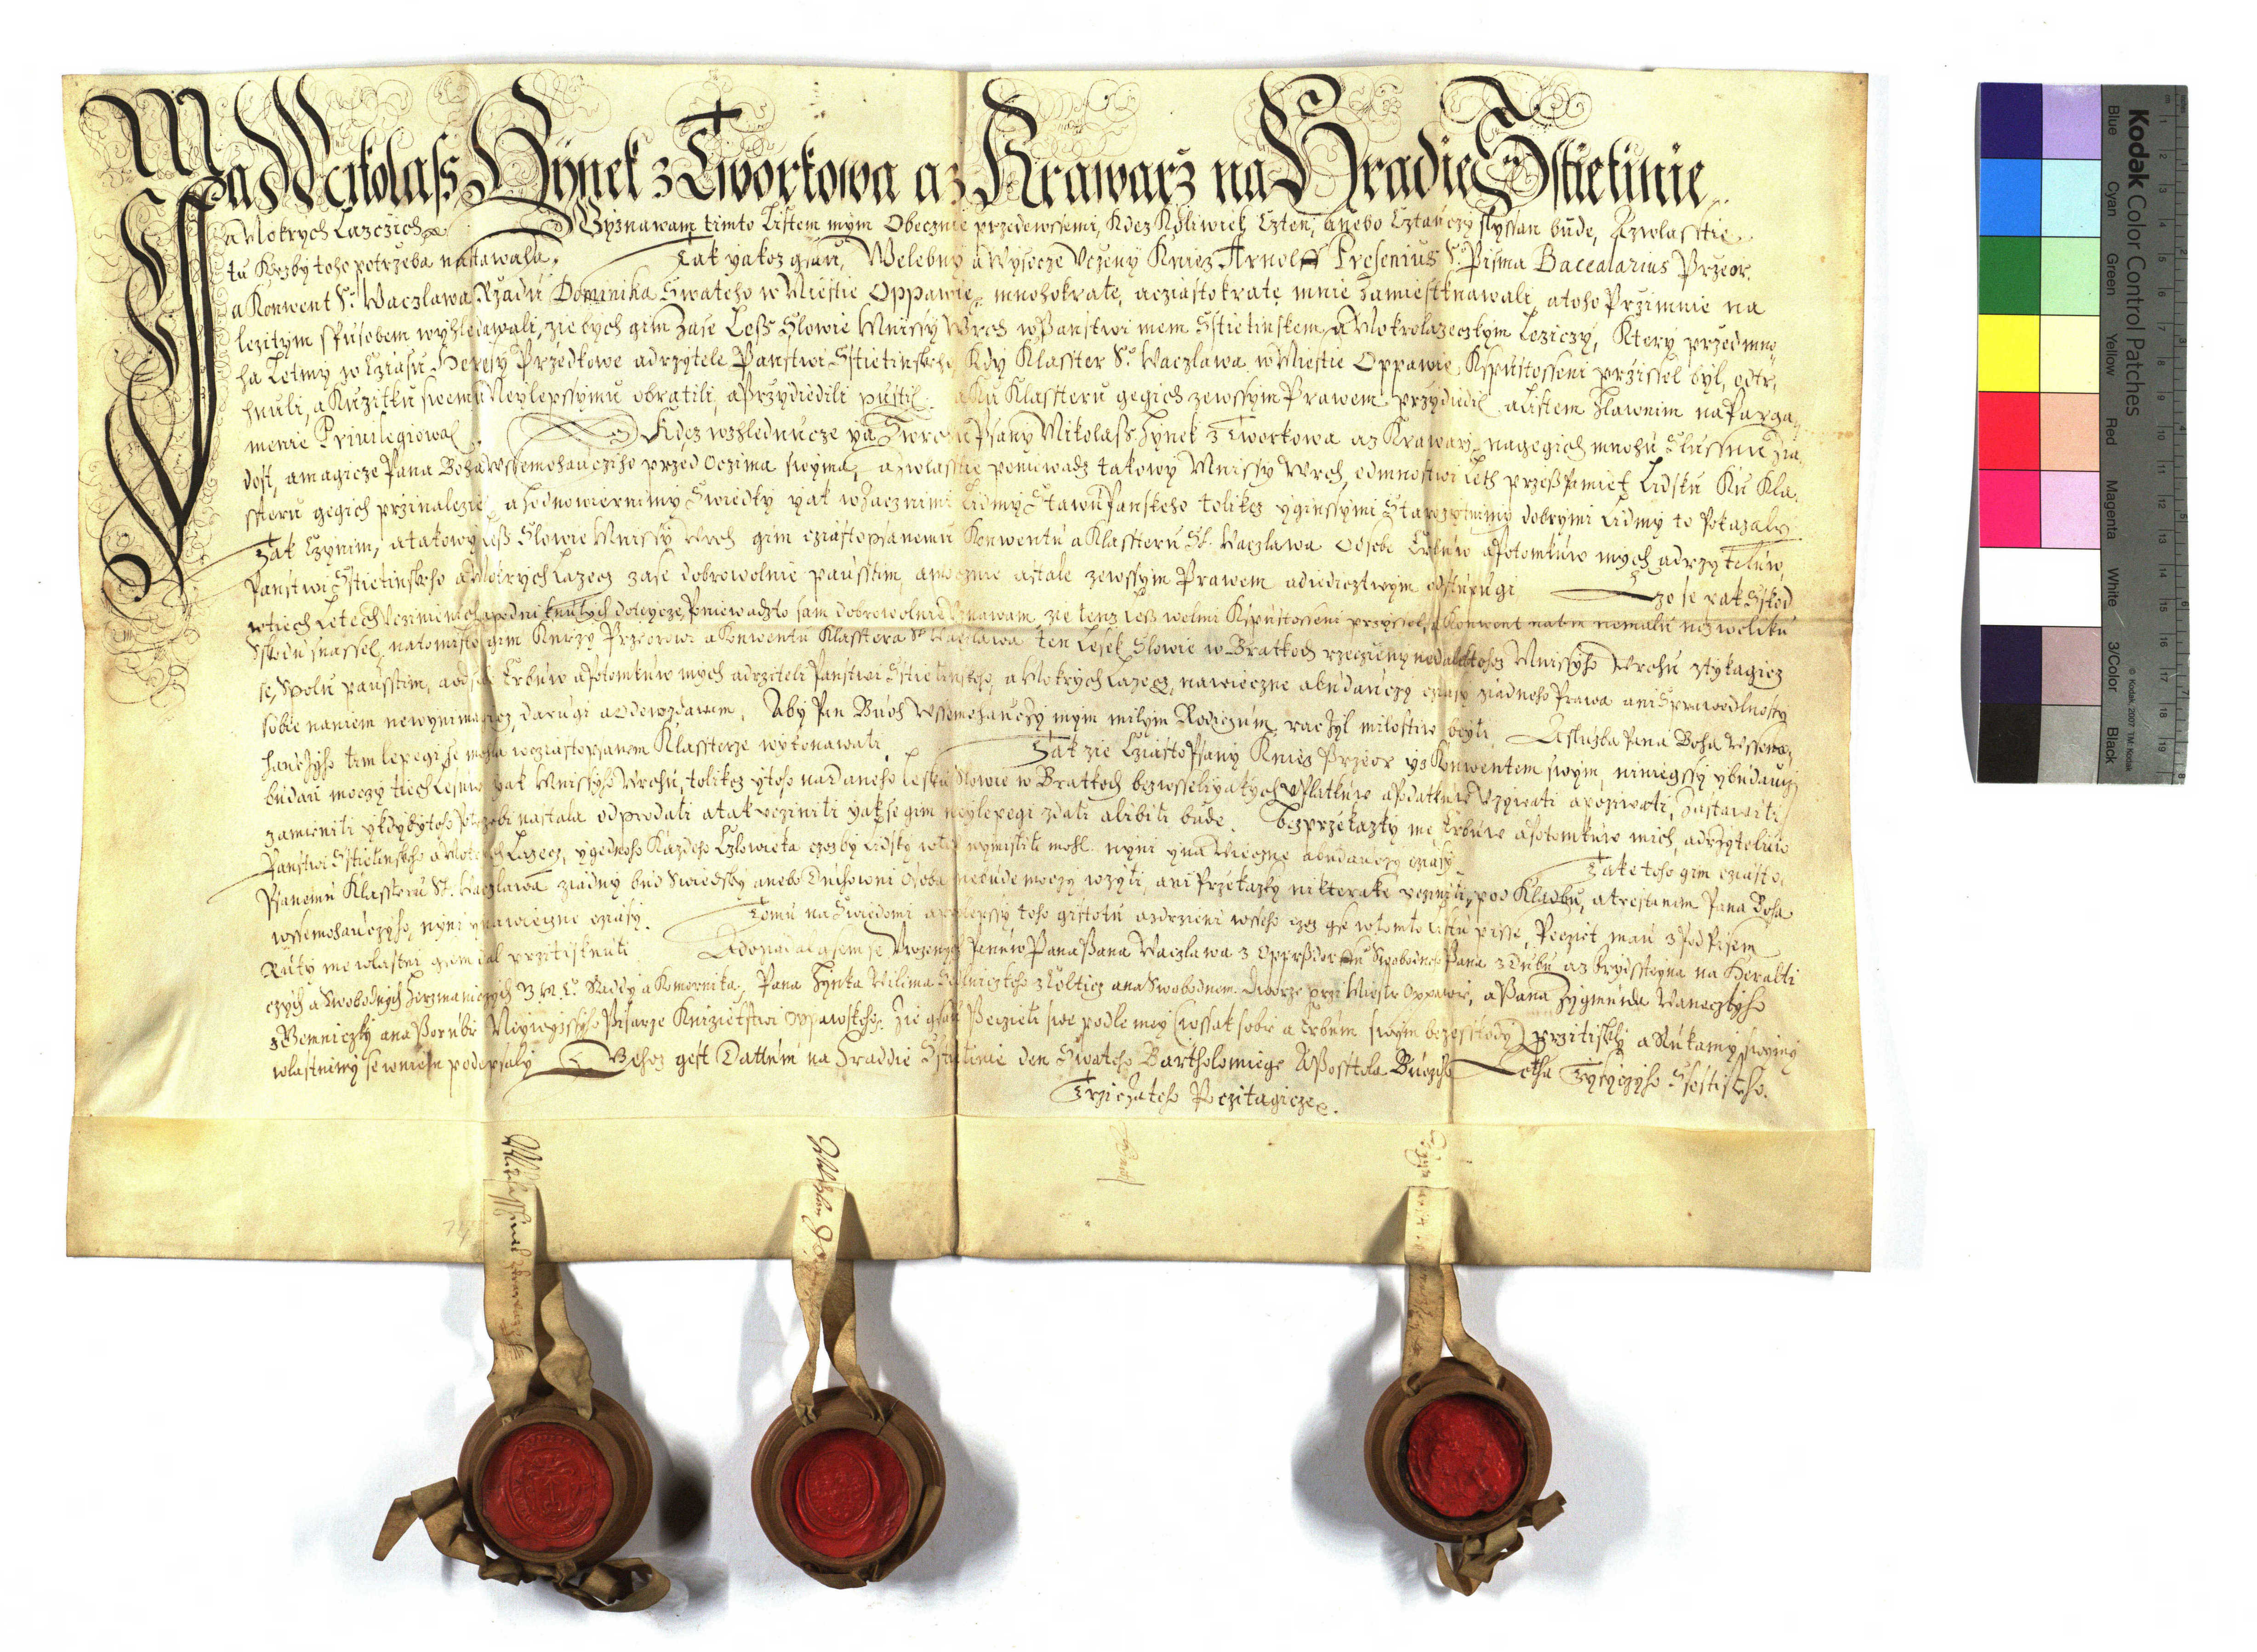 Ja Mikolass Hynek z Tworkowa a z Krawarz na Hradie Sstietinie
a Mokrych Lazczich Wyznawam timto Listem mym Obecznie przedewssemi, Kdez Koliwiek Czten, anebo Cztauczy slyssan bude, A zwlasstie
tu Kdezby toho potrzeba nastawala. Tak yakoz gsau, Welebny a Wysocze Vczeny Kniez Arnolff Fresenius S. Pisma Baccalarius Przeor
a Konwent Sº Waczlawa Rzadu Dominika Swateho w Miestie Oppawie, mnohokrate, a cziastokrate mnie zamiestknawali, a toho Przimnie na
lezitym spusobem wyhledawali, zie bych gim zase Less Slowie Mnissy Wrch w Panstwi mem Sstietinskem, a Mokrolazeczkym Leziczy, Ktery przed mno
ha Letmy w Cziasu Heresy Przedkowe a drzytele Panstwi Sstietinskeho Kdy Klasster Sº Waczlawa w Miestie Oppawie, Kspustosseni przissel byl, odtr,
hnuli, a Kuzitku swemu Neylepssymu obratili, a Przydiedili pustil, a Ku Klassteru gegich zewssym Prawem przydiedil, a Listem Hlawnim na Parga,
menie Privilegiowal. Kdez wzhlednucze ya Swrchu Psany Mikolass Hynek z Tworkowa a z Krawarz, na gegich mnohu Slussnu Zia,
dost, a magicze Pana Boha Wssemohauczyho przed Oczima swyma, a zwlasstie poniewadz takowy Mnissy Wrch, od mnostwi Leth przess Pamiet Lidsku Ku Kla,
ssteru gegich przinalezie, a hodnowiernimy Swiedky yak wzacznimi Lidmy Stawu Panskeho tolikez y ginssymi Starozytnimy dobrymi Lidmy to Pokazaly.
Tak Czynim, a takowy Less Slowie Mnissy Wrch gim cziastopsanemu Konwentu a Klassteru Sº Waczlawa od sebe Erbuw a Potomkuw mych a drzyteluw,
Panstwi Sstietinskeho a Mokrych Lazecz zase dobrowolnie paustim, a wiecznie a stale zewssym Prawem a diedicztwym odstupugi Czo se pak Sskod
w tiech Letech Vczinienich a podniknutych dotycze, Poniewadz to sam dobrowolnie Vznawam, zie tenz Less welmi Kspustosseni przyssel, a Konwent na tem nemalu nez weliku
Sskodu snassel, na to misto gim Kniezy Przeorowi a Konwentu Klasstera Sº Waczlawa ten Lesek Slowie w Bratkoch rzeczieny nedaleko tehoz Mnissyho Wrchu stykagicz
se, Spolu pausstim, a od sebe Erbuw a Potomkuw mych a drziteli Panstwi Sstietinskeho, a Mokrych Lazecz, na wieczne a buduczy cziasy ziadneho Prawa ani Sprawedlnosty
sobie na niem newynimagicz, darugi a Oddewzdawam, Aby Pan Buoh Wssemohauczy mym milym Rodiczum raczyl milostiw byti, A sluzba Pana Boha Wssemo,
hauczyho tim lepegi se mohla w cziastopsanem Klassterze wykonawati. Tak zie Cziasto Psany Kniez Przeor y s Konwentem swym, niniegssy y buduczy
budau moczy tiech Lesuw yak Mnissyho Wrchu, tolikez y toho nadaneho Lesku Slowie w Bratkoch bezwsselikyakych Vplatkuw a Podatkuw Vzywati a pozywati, Zastawiti,
zamieniti y kdyby toho Potrzebi nastala odprodati a tak vcziniti yak se gim neylepegi zdati a libiti bude. Bez przekazky me Erbuw a Potomkuw mich, a drzyteluw
Panstwi Sstietinskeho a Mokrych Lazecz, y gednoho Kazdeho Czlowieka czozby Lidsky wtip wymisliti mohl nyni y na Wieczne a buduczy cziasy. Take toho gim cziasto
Psanemu Klassteru Sº Waczlawa ziadny bud Swiedsky anebo Duchowni Osoba nebude moczy wzyti, ani Przekazky nikterake vcziniti, pod Kladbu, a trestanim Pana Boha
wssemohauczyho, nyni y na wieczne cziasy. Tomu na Swiedomi a pro lepssy toho gistotu a zdrzieni wsseho czoz gse w tomto Listu pisse, Peczet mau s Pod Pisem
Ruky me wlastni gsem dal przitisknuti. A dozadal gsem se Vrozenych Panuw Pana Pana Waczlawa z Oppersdorffu Swobodneho Pana z Dubu a z Frydssteyna na Heralti
czych a Swobodnych Herzmaniczych J. M. C. Raddy a Komornika, Pana Hynka Wilima Sedlniczkeho z Cholticz a na Swobodnem Dworze przi Miestie Oppawie, a Pana Zygmunda Waneczkyho
z Gemniczky a na Porube Neywyssyho Pisarze Knizietstwi Oppawskeho. Zie gsau Peczieti swe podle mey (wssak sobie a Erbum swym bezesskody) przitiskly a Rukamy swymi
wlastnimy se w niem podepsaly Gehoz gest Dattum na Hraddie Sstietinie den Swateho Bartholomiege Aposstola Buoziho Letha Tysyczyho Ssestisteho
Trziczateho Pocztagicze.
Mikolass Hinek
Waczlaw
Kodak Color Control Patches
Blue Cyan Green Yellow Red Magenta White 3/Color Black
© Kodak, 2007 TM: Kodak
cm 1 2 3 4 5 6 7 8 9 10 11 12 13 14 15 16 17 18 19